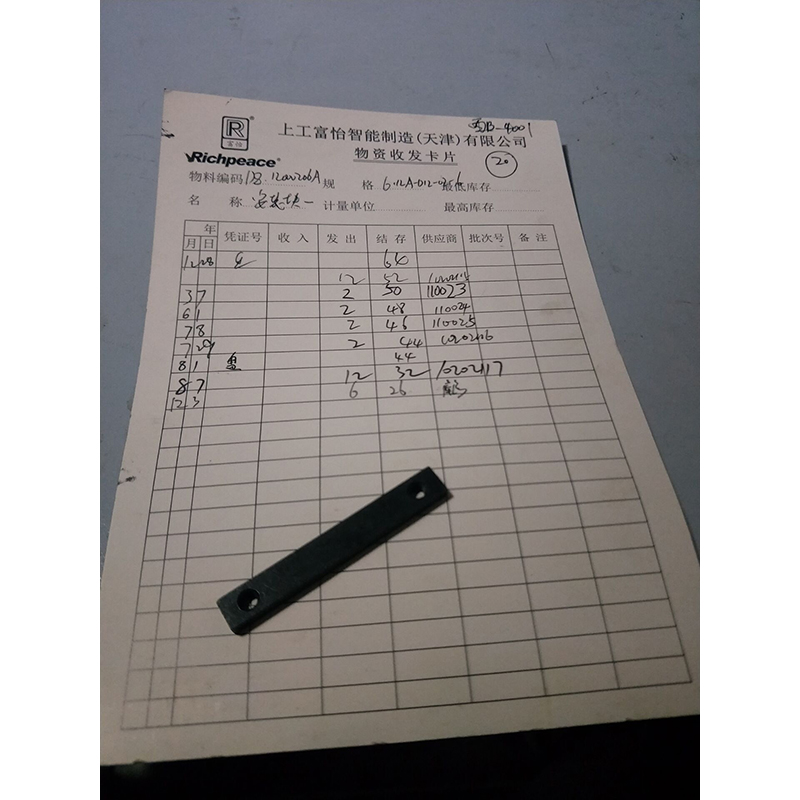 上工富怡智能制造(天津)有限公司
R
富怡
Richpeace®
物资收发卡片
20
物料编码 规格 最低库存
名称 计量单位 最高库存
年
月 日 凭证号 收入 发出 结存 供应商 批次号 备注
12 28 64
12 52
3 7 2 50 110023
6 1 2 48 110024
7 8 2 46 110025
7 29 2 44
8 1 盘 44
8 7 12 32 10202117
12 3 6 26